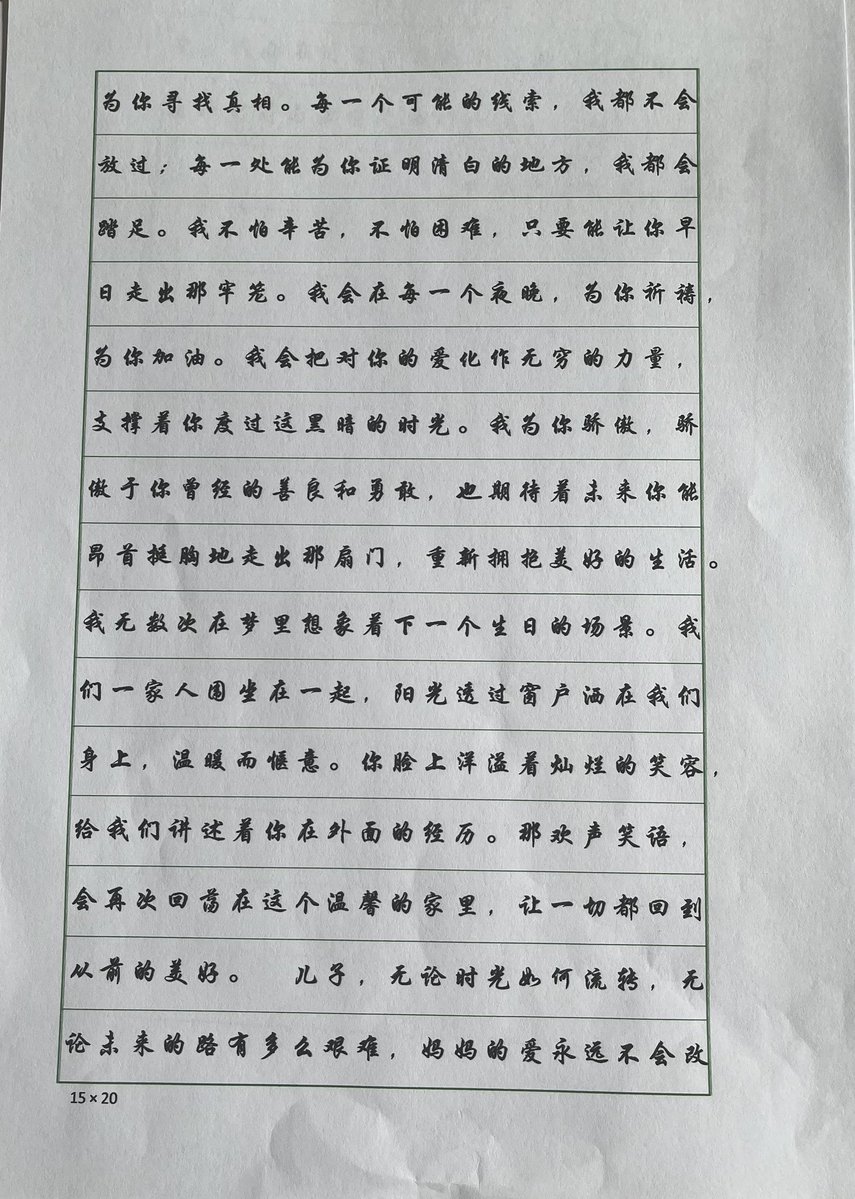 为你寻找真相。每一个可能的线索，我都不会
放过；每一处能为你证明清白的地方，我都会
踏足。我不怕辛苦，不怕困难，只要能让你早
日走出那牢笼。我会在每一个夜晚，为你祈祷，
为你加油。我会把对你的爱化作无穷的力量，
支撑着你度过这黑暗的时光。我为你骄傲，骄
傲于你曾经的善良和勇敢，也期待着未来你能
昂首挺胸地走出那扇门，重新拥抱美好的生活。
我无数次在梦里想象着下一个生日的场景。我
们一家人围坐在一起，阳光透过窗户洒在我们
身上，温暖而惬意。你脸上洋溢着灿烂的笑容，
给我们讲述着你在外面的经历。那欢声笑语，
会再次回荡在这个温馨的家里，让一切都回到
从前的美好。 儿子，无论时光如何流转，无
论未来的路有多么艰难，妈妈的爱永远不会改
15×20